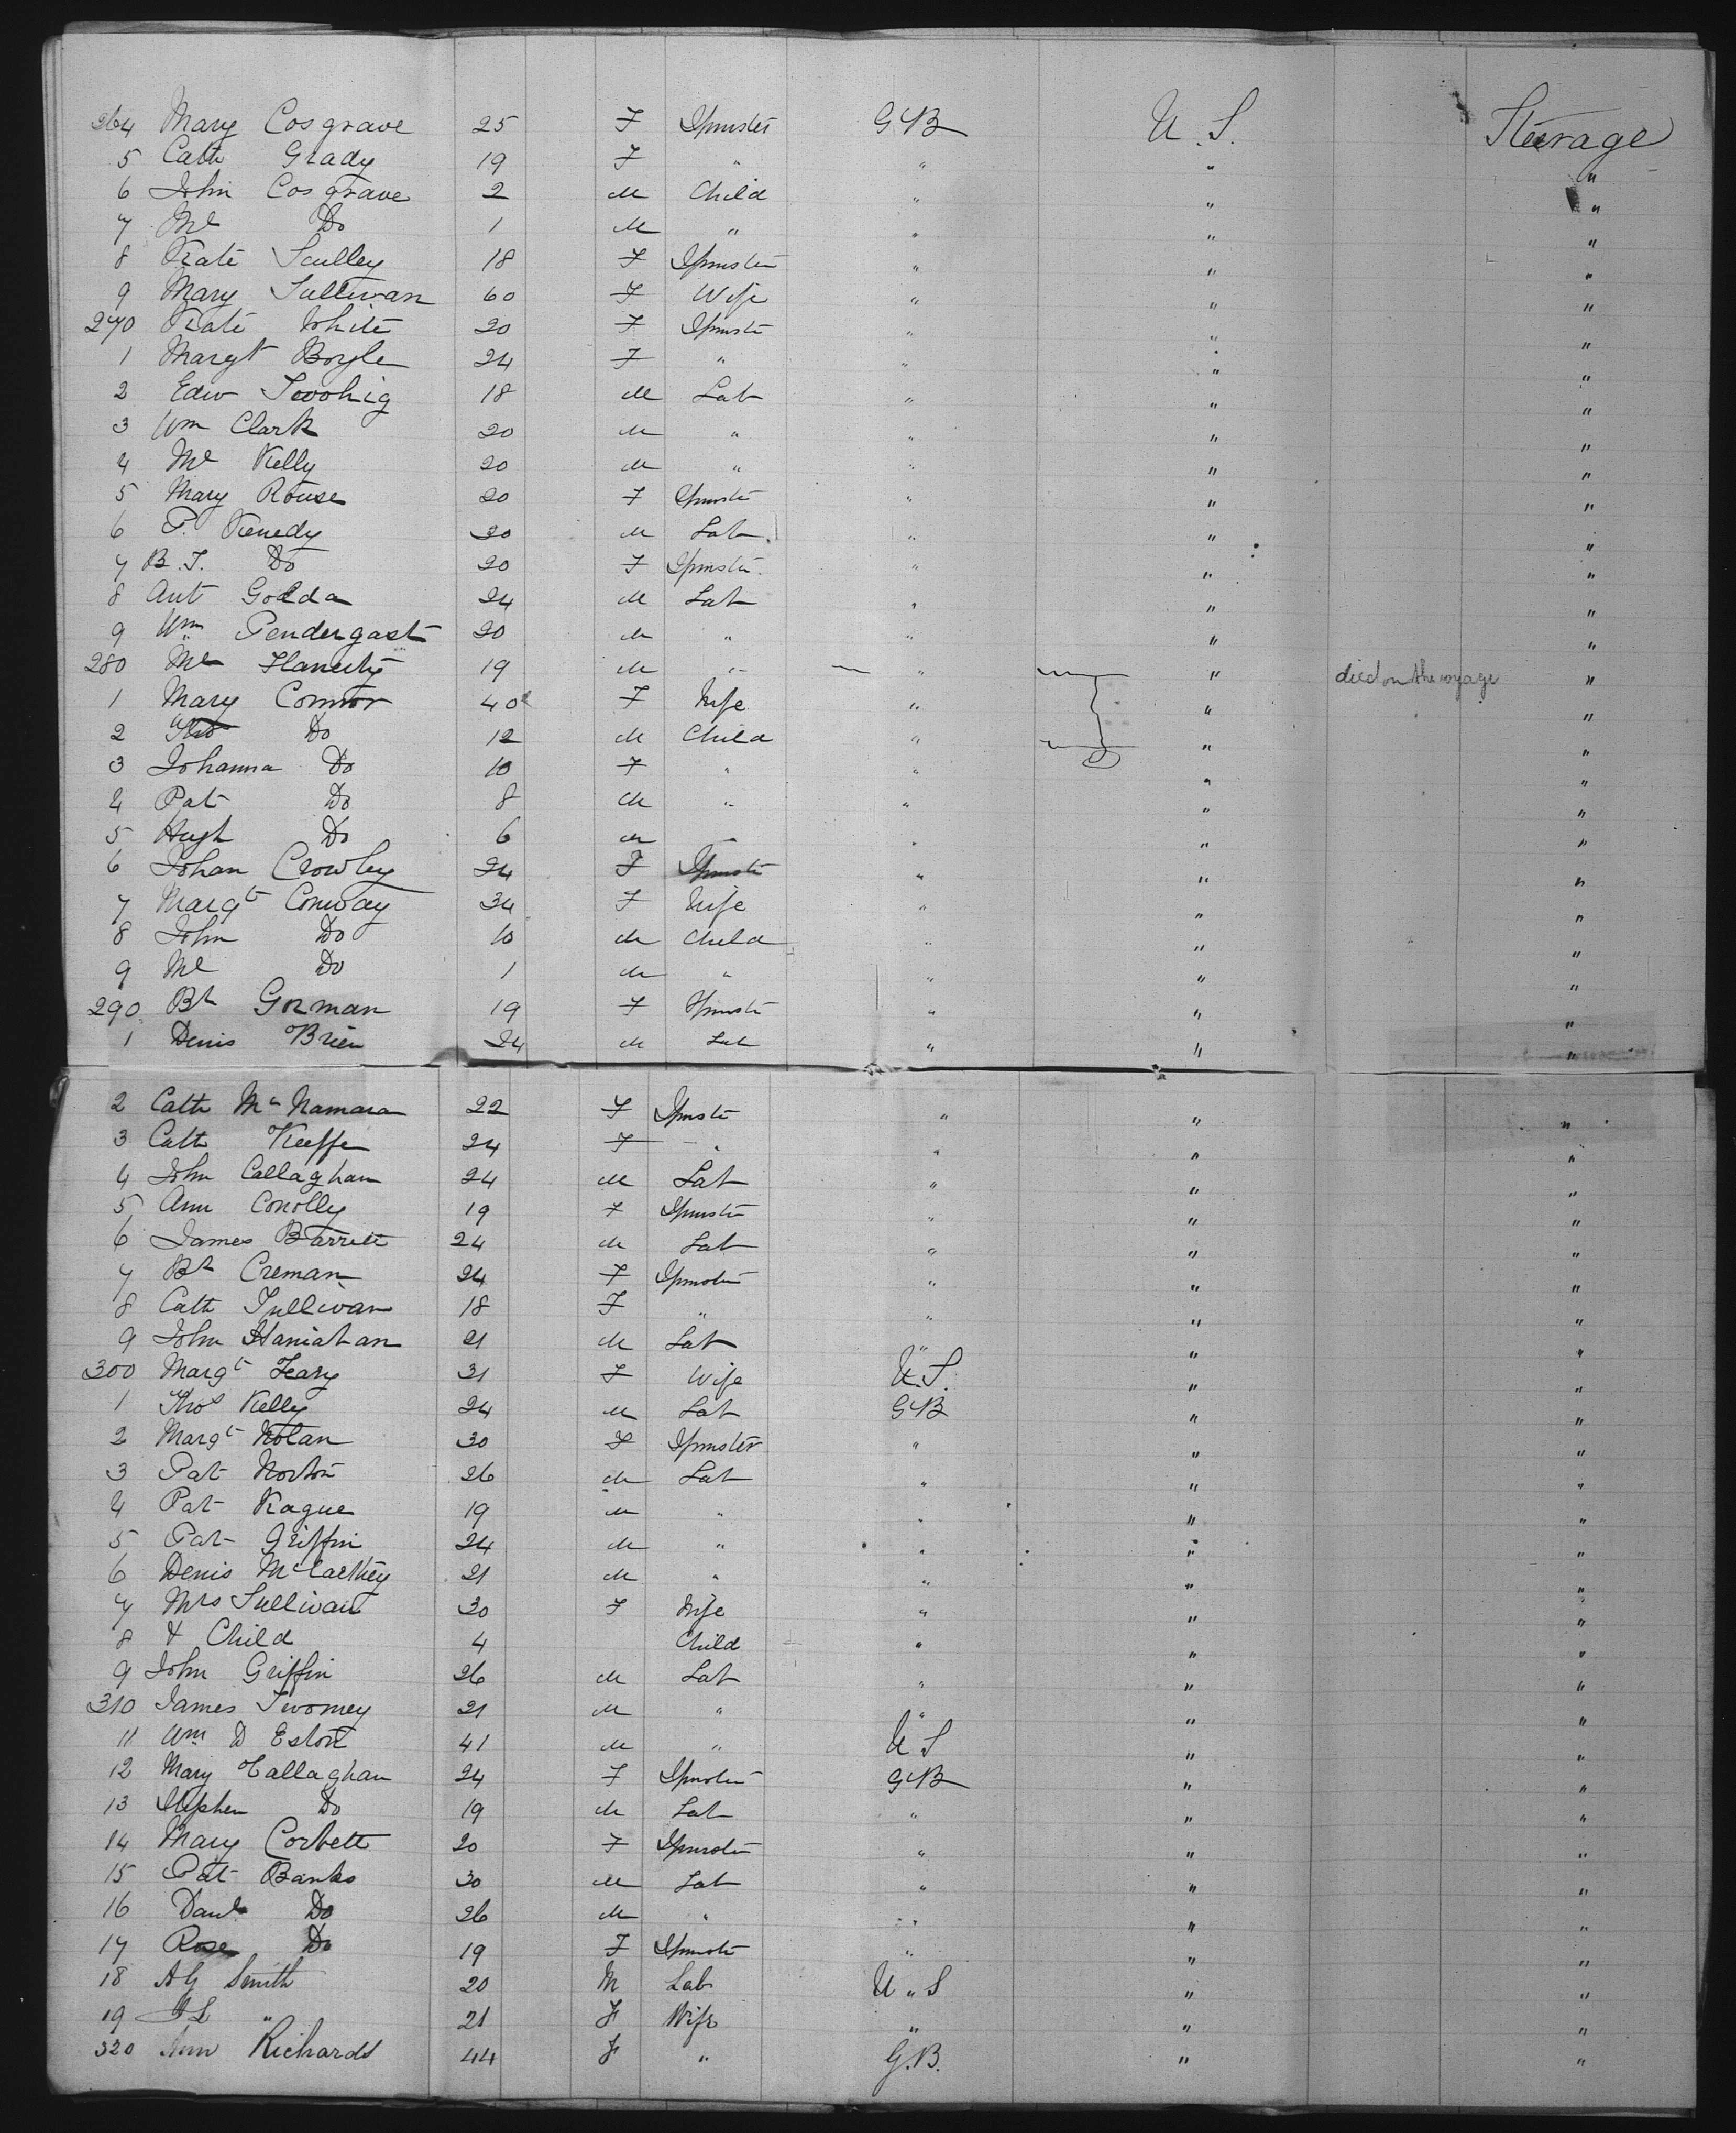 264 Mary Cosgrave 25 F Spinster GB U.S. Steerage
5 Cath Grady 19 F " " " "
6 John Cosgrave 2 M Child " " "
7 Ml Do 1 M " " " "
8 Kate Sculley 18 F Spinster " " "
9 Mary Sullivan 60 F Wife " " "
270 Kate White 20 F Spinster " " "
1 Margt Boyle 24 F " " " "
2 Edw Twohig 18 M Lab " " "
3 Wm Clark 20 M " " " "
4 Ml Kelly 20 M " " " "
5 Mary Rouse 20 F Spinster " " "
6 P. Kenedy 20 M Lab " " "
7 B.J. Do 20 F Spinster " " "
8 Ant Golda 24 M Lab " " "
9 Wm Pendergast 20 M " " " "
280 Ml 19 M " " " died on the voyage "
1 Mary Connor 40 F Wife " " "
2 Do 12 M Child " " "
3 Johanna Do 10 F " " " "
4 Pat Do 8 M " " " "
5 Hugh Do 6 M " " " "
6 Johan Crowley 24 F Spinster " " "
7 Margt Conway 34 F Wife " " "
8 John Do 10 M Child " " "
9 Ml Do 1 M " " " "
290 Bt Gorman 19 F Spinster " " "
1 Denis Brien 24 M Lab " " "
2 Cath McNamara 22 F Spinster " " "
3 Cath Keeffe 24 F " " " "
4 John Callaghan 24 M Lab " " "
5 Ann Conolly 19 F Spinster " " "
6 James Barrett 24 M Lab " " "
7 Bt Creman 24 F Spinster " " "
8 Cath Sullivan 18 F " " " "
9 John Hanahan 21 M Lab " " "
300 Margt Leary 31 F Wife U.S. " "
1 Thos Kelly 24 M Lab GB " "
2 Margt Nolan 30 F Spinster " " "
3 Pat Norton 26 M Lab " " "
4 Pat Kague 19 M " " " "
5 Pat Griffin 24 M " " " "
6 Denis McCarthey 21 M " " " "
7 Mrs Sullivan 30 F Wife " " "
8 & Child 4 Child " " "
9 John Griffin 26 M Lab " " "
310 James Twomey 21 M " " " "
11 Wm D Eston 41 M " U S " "
12 Mary Callaghan 24 F Spinster GB " "
13 Stephen Do 19 M Lab " " "
14 Mary Corbett 20 F Spinster " " "
15 Pat Banks 30 M Lab " " "
16 Danl Do 26 M " " " "
17 Rose Do 19 F Spinster " " "
18 AG Smith 20 M Lab U " S " "
19 " 21 F Wife " " "
320 Ann Richards 44 F " G.B. " "